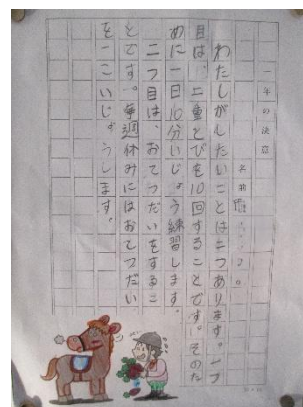 一年の決意
名前
わたしがしたいことは二つあります。一つ
目は、二重とびを10回することです。そのた
めに一日10分いじょう練習します。
二つ目は、おてつだいをするこ
とです。毎週休みにはおてつだい
を一こいじょうします。